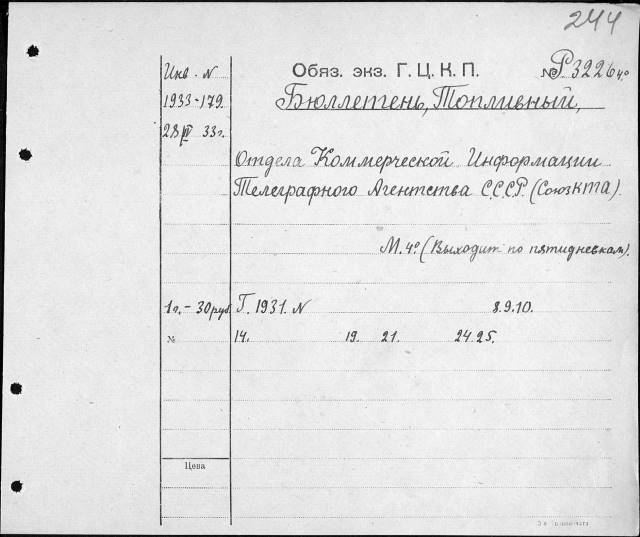 244
Инв. N Обяз. экз. Г. Ц. К. П. № Р3226 4º
1933-179. Бюллетень, Топливный,
28/IV 33г.
Отдела Коммерческой Информации
Телеграфного Агентства С.С.С.Р. (СоюзКТА).
М. 4º (Выходит по пятидневкам).
1г. - 30 руб. Г. 1931. N 8.9.10.
№ 14. 19. 21. 24.25.
Цена